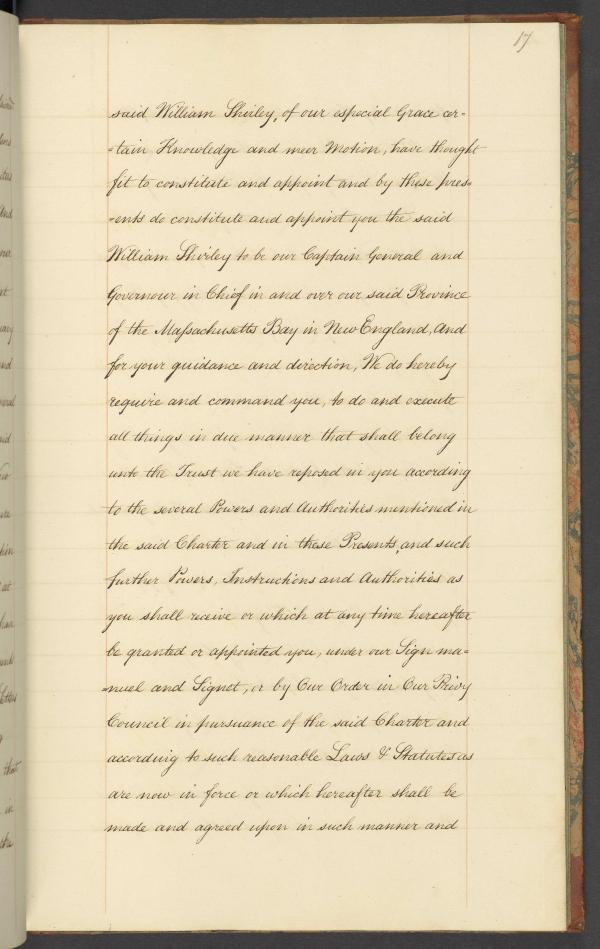 17
said William Shirley, of our especial Grace cer=
=tain Knowledge and meer Motion, have thought
fit to constitute and appoint and by these pres=
=ents do constitute and appoint you the said
William Shirley to be our Captain General and
Governour in Chief in and over our said Province
of the Massachusetts Bay in New England, And
for your guidance and direction, We do hereby
require and command you, to do and execute
all things in due manner that shall belong
unto the Trust we have reposed in you according
to the several Powers and Authorities mentioned in
the said Charter and in these Presents, and such
further Powers, Instructions and Authorities as
you shall receive or which at any time hereafter
be granted or appointed you, under our Sign ma=
=nuel and Signet, or by Our Order in Our Privy
Council in pursuance of the said Charter and
according to such reasonable Laws & Statutes as
are now in force or which hereafter shall be
made and agreed upon in such manner and